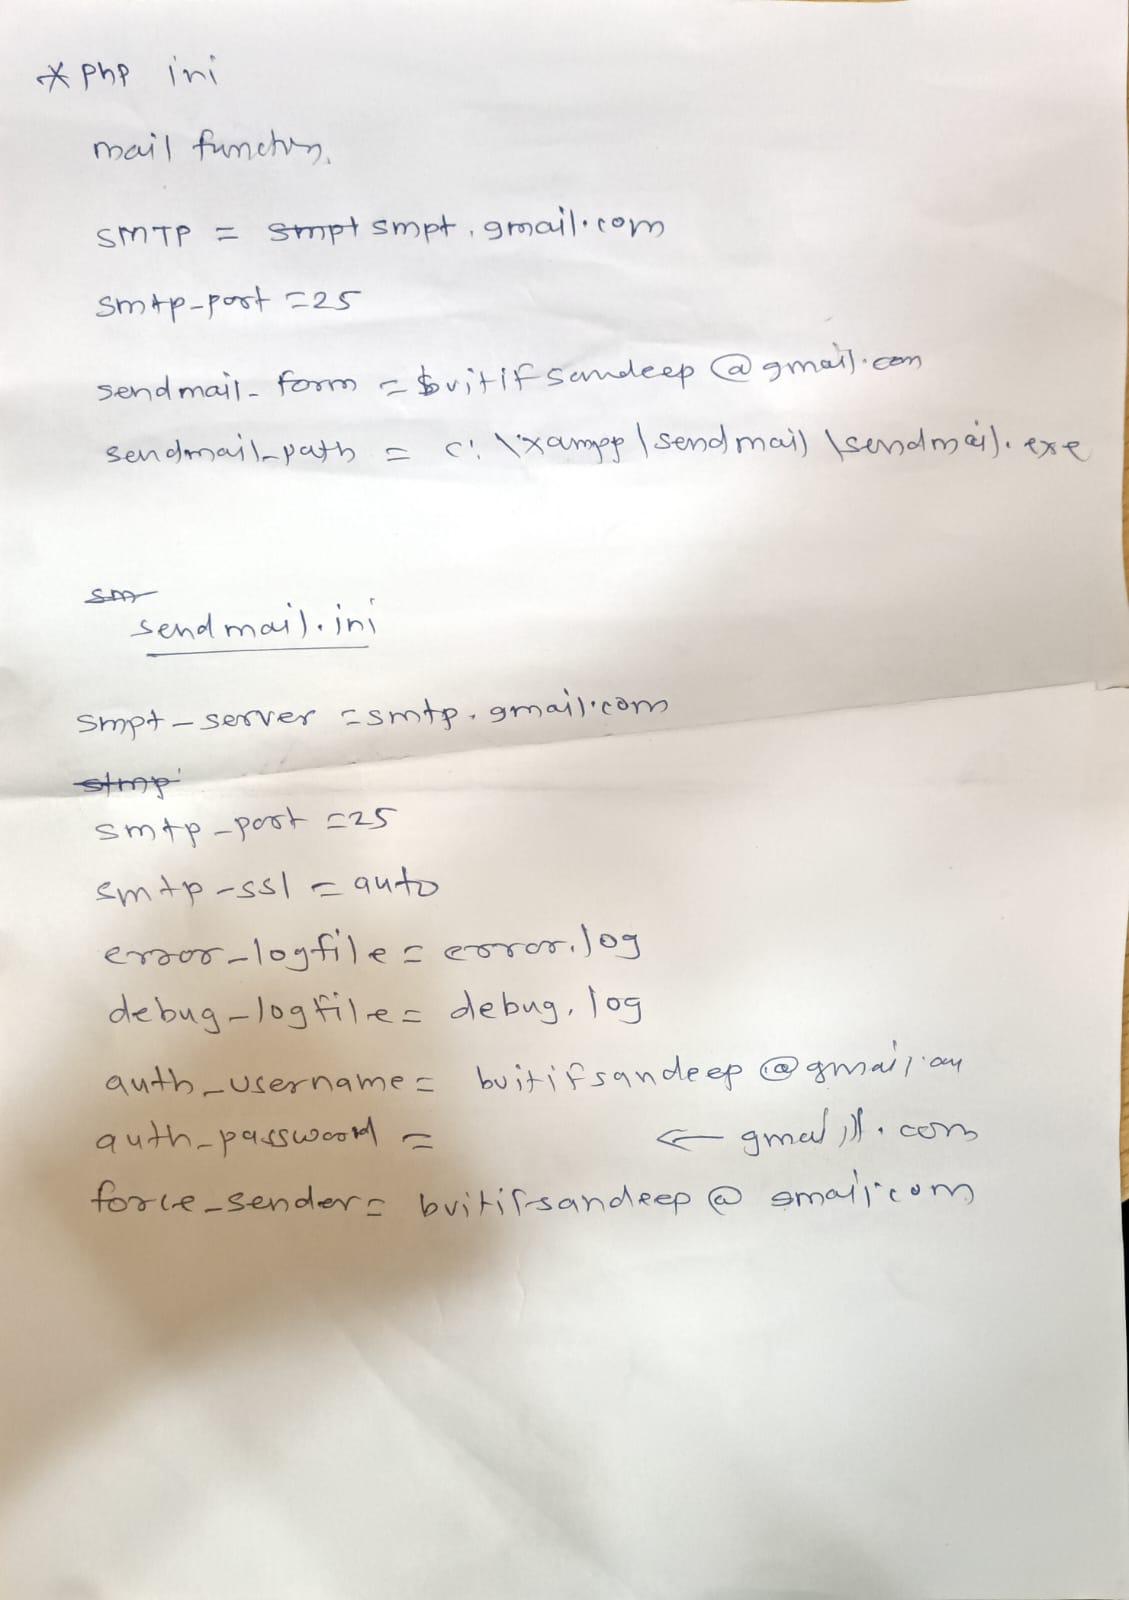 * php ini
mail function.
SMTP = smpt smpt.gmail.com
smtp-port =25
sendmail-form = bvitifsandeep@gmail.com
sendmail-path = c:\xampp\sendmail\sendmail.exe
sm
sendmail.ini
smpt-server =smtp.gmail.com
stmp
smtp-port =25
smtp-ssl = auto
error-logfile = error.log
debug-logfile = debug.log
auth-username = bvitifsandeep@gmail.com
auth-password = ← .com
force-sender = bvitifsandeep@gmail.com